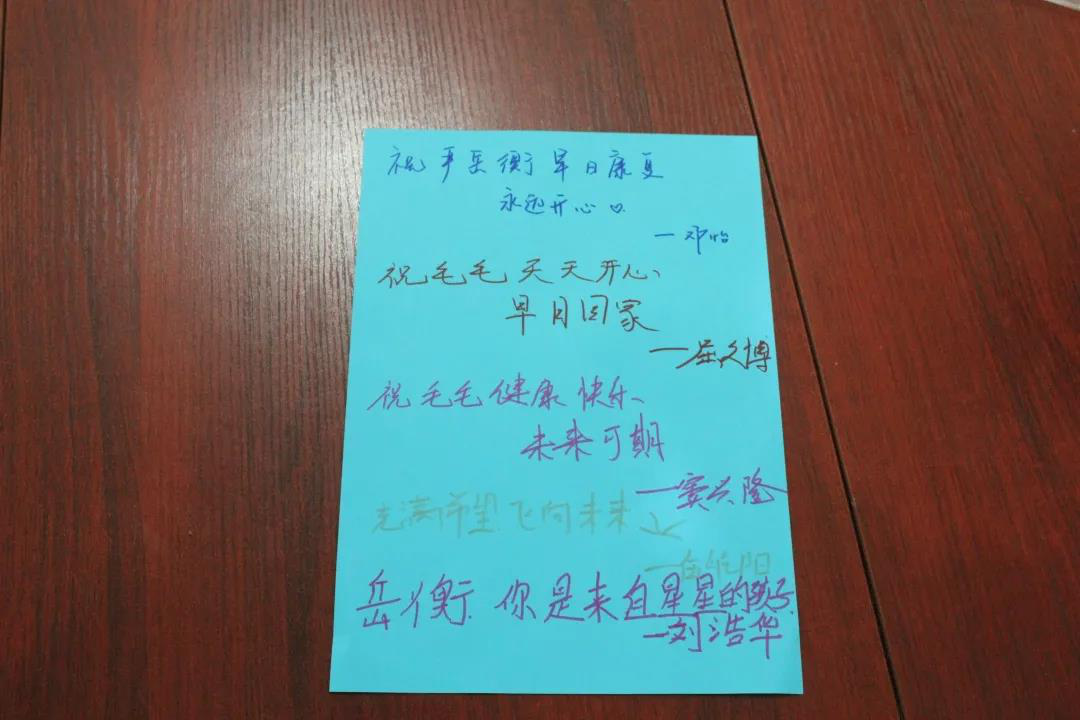 祝严岳衡早日康复
永远开心♡
—邓怡
祝毛毛天天开心、
早日回家
—屈久博
祝毛毛健康快乐、
未来可期
—窦兴隆
充满希望飞向未来
阳
岳衡 你是来自星星的孩子
—刘浩华